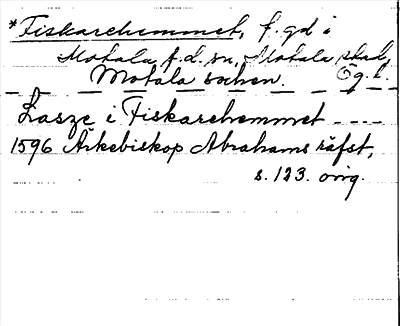 *Fiskarehemmet, f. gd i
Motala, f.d. sn, Motala stad,
Motala socken. Ög. l.
Lasze i Fiskarehemmet ----
1596 Ärkebiskop Abrahams räfst,
s. 123. orig.